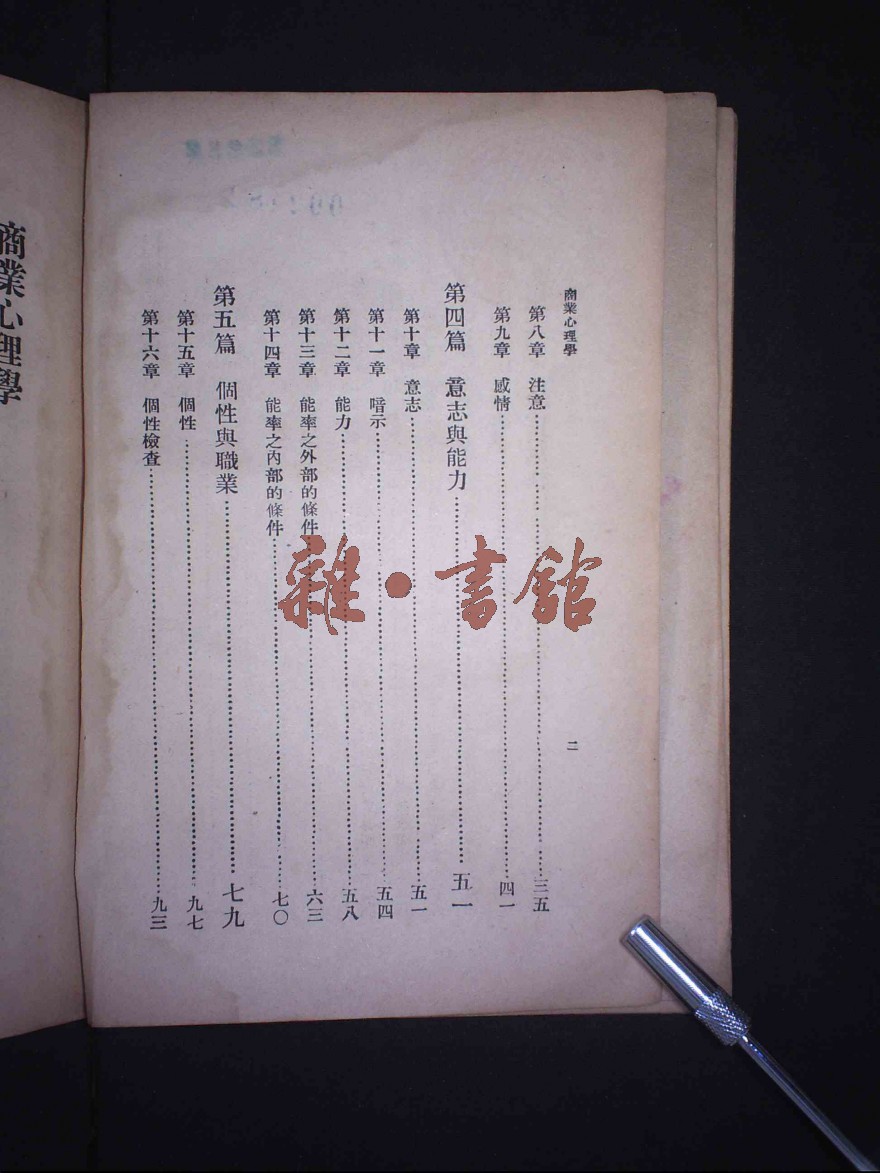 商業心理學
二
第八章 注意……三五
第九章 感情……四一
第四篇 意志與能力……五一
第十章 意志……五一
第十一章 暗示……五四
第十二章 能力……五八
第十三章 能率之外部的條件……六三
第十四章 能率之內部的條件……七〇
第五篇 個性與職業……七九
第十五章 個性……九七
第十六章 個性檢查……九三
商業心理學
雜·書館